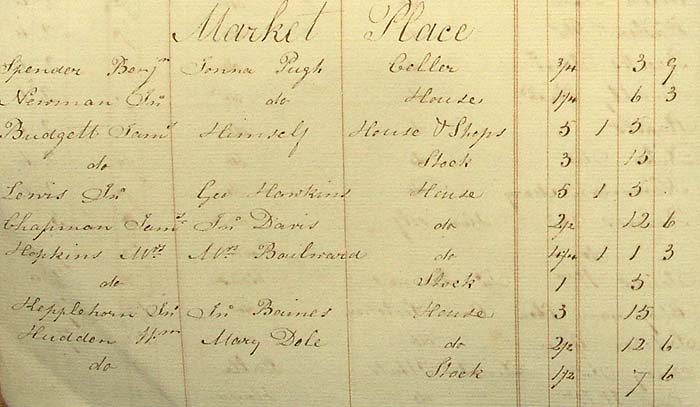 Market Place
Spender Benjn Jonna Pugh Celler ¾ 3 9
Newman Jno do House 1¼ 6 3
Budgett Saml Himself House & Shops 5 1 5
do Stock 3 15
Lewis Jno Geo Hawkins House 5 1 5 .
Chapman Saml Jno Davis do 2½ 12 6
Hopkins Mrs Mrs Boulward do 4¼ 1 1 3
do Stock 1 5
Hepplehorn Jno Jno Baines House 3 15
Hudden Wm Mary Dole do 2½ 12 6
do Stock 1½ 7 6